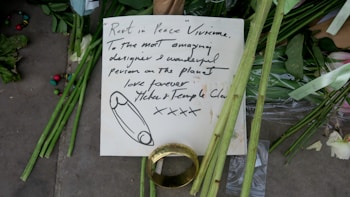 Rest in Peace "Vivienne.
To the most amazing
designer & wonderful
person on the planet
love forever
& Temple
xxxx